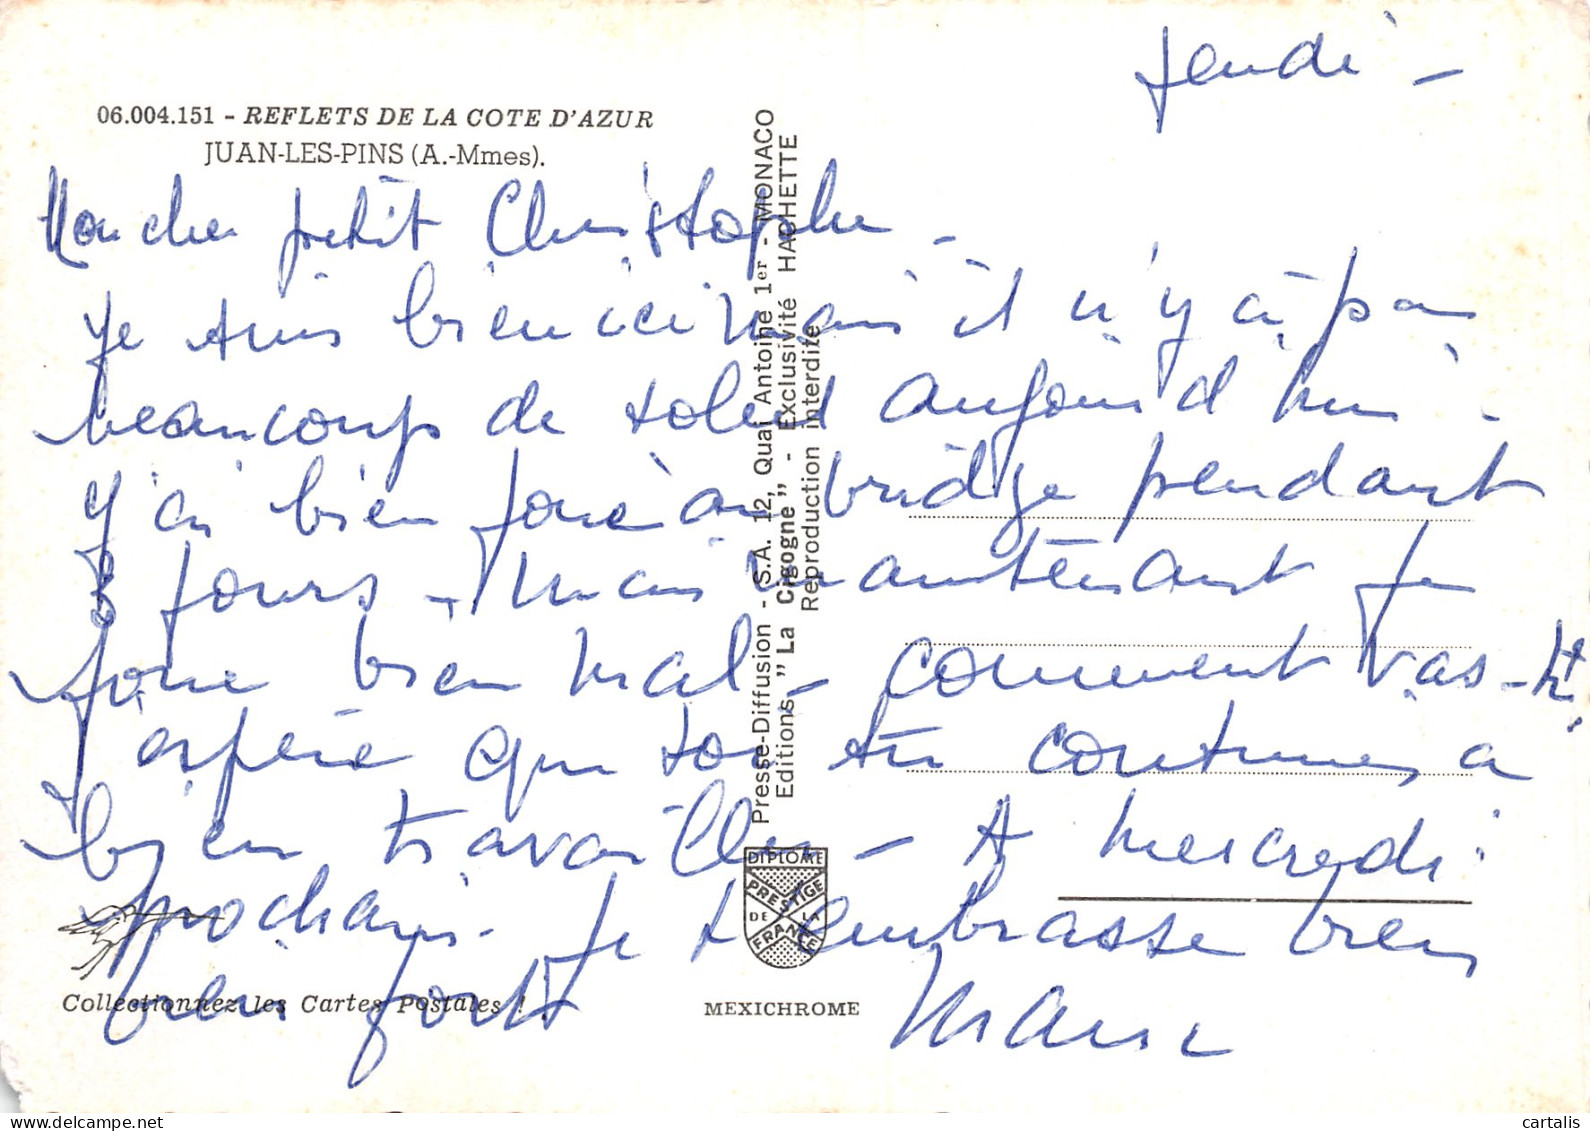 jeudi -
06.004.151 - REFLETS DE LA COTE D'AZUR
JUAN-LES-PINS (A.-Mmes).
Mon cher petit Christophe -
Je suis bien ici mais il n'y a pas
beaucoup de soleil aujourd'hui -
J'ai bien joué au bridge pendant
3 jours - Mais maintenant je
joue bien mal - comment vas-tu
J'espère que toi tu continues a
bien travailler - A mercredi
prochain. Je t'embrasse bien
bien fort
Presse-Diffusion - S.A. 12, Quai Antoine 1er - MONACO
Editions "La Cigogne" - Exclusivité HACHETTE
Reproduction interdite
DIPLOME
PRESTIGE
DE LA
FRANCE
Collectionnez les Cartes Postales !
MEXICHROME
cartalis